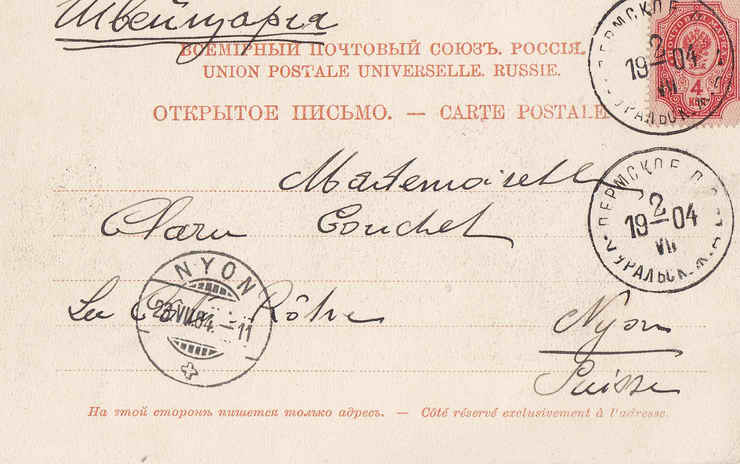 Швейцарія
ВСЕМІРНЫЙ ПОЧТОВЫЙ СОЮЗЪ. РОССІЯ.
UNION POSTALE UNIVERSELLE. RUSSIE.
ОТКРЫТОЕ ПИСЬМО. — CARTE POSTALE
4
ПЕРМСКОЕ
2
19 04
VII
УРАЛЬСК.
Mademoiselle
Clara Couchet
ПЕРМСКОЕ
2
19 04
VII
УРАЛЬСК.
NYON
23 VII 04. -11
La Rôtre
Nyon
Suisse
На этой сторонѣ пишется только адресъ. — Côté réservé exclusivement à l'adresse.